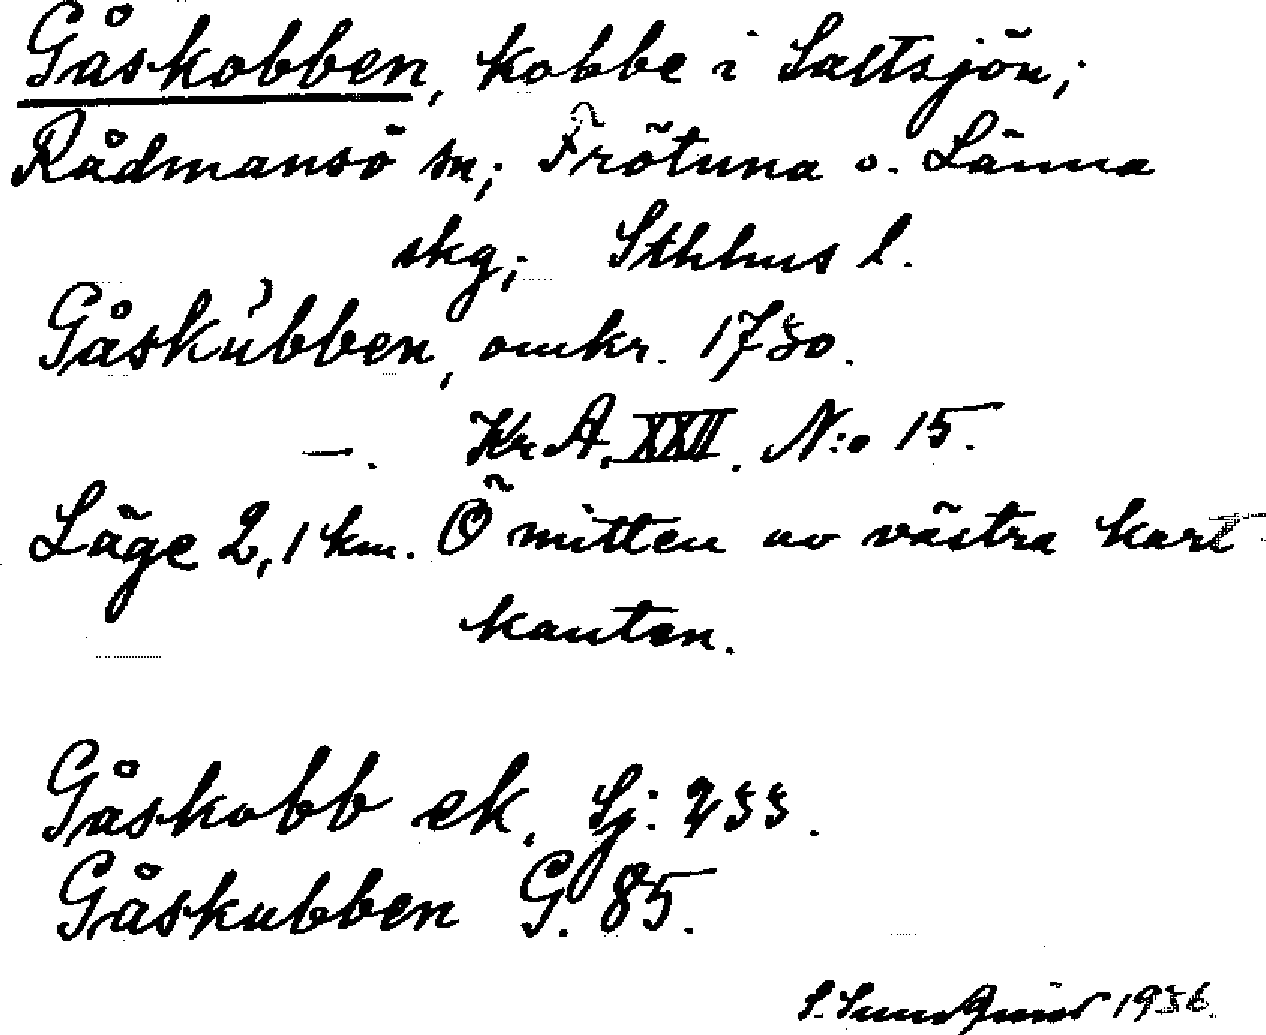 Gåskobben, kobbe i Saltsjön;
Rådmansö sn; Frötuna o. Länna
skg; Sthlms l.
Gåskubben, omkr. 1730.
—. Kr. A. XXII. N:o 15.
Läge 2,1 km. Ö mitten av västra kart
kanten.
Gåskobb ek. Sj: 233.
Gåskubben G. 85.
S. 1936